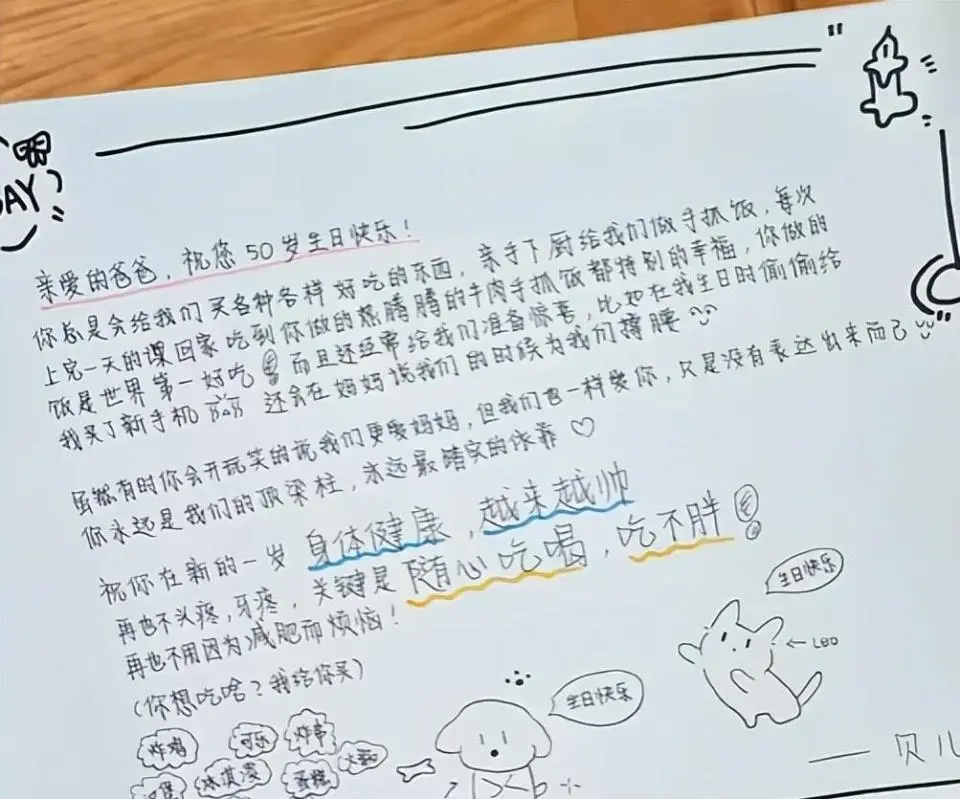 AY
亲爱的爸爸，祝您50岁生日快乐！
你总是会给我们买各种各样好吃的东西，亲手下厨给我们做手抓饭，每次
上完一天的课回家吃到你做的热腾腾的牛肉手抓饭都特别的幸福，你做的
饭是世界第一好吃 而且还经常给我们准备惊喜，比如在我生日时偷偷给
我买了新手机 还会在妈妈说我们的时候为我们撑腰
虽然有时你会开玩笑的说我们更爱妈妈，但我们也一样爱你，只是没有表达出来而已
你永远是我们的顶梁柱，永远最踏实的依靠
祝你在新的一岁 身体健康，越来越帅
再也不头疼，牙疼，关键是随心吃喝，吃不胖
再也不用因为减肥而烦恼！
（你想吃啥？我给你买）
生日快乐
LEO
生日快乐
炸鸡 可乐 炸串
汉堡 冰淇淋 蛋糕 火锅
——贝儿